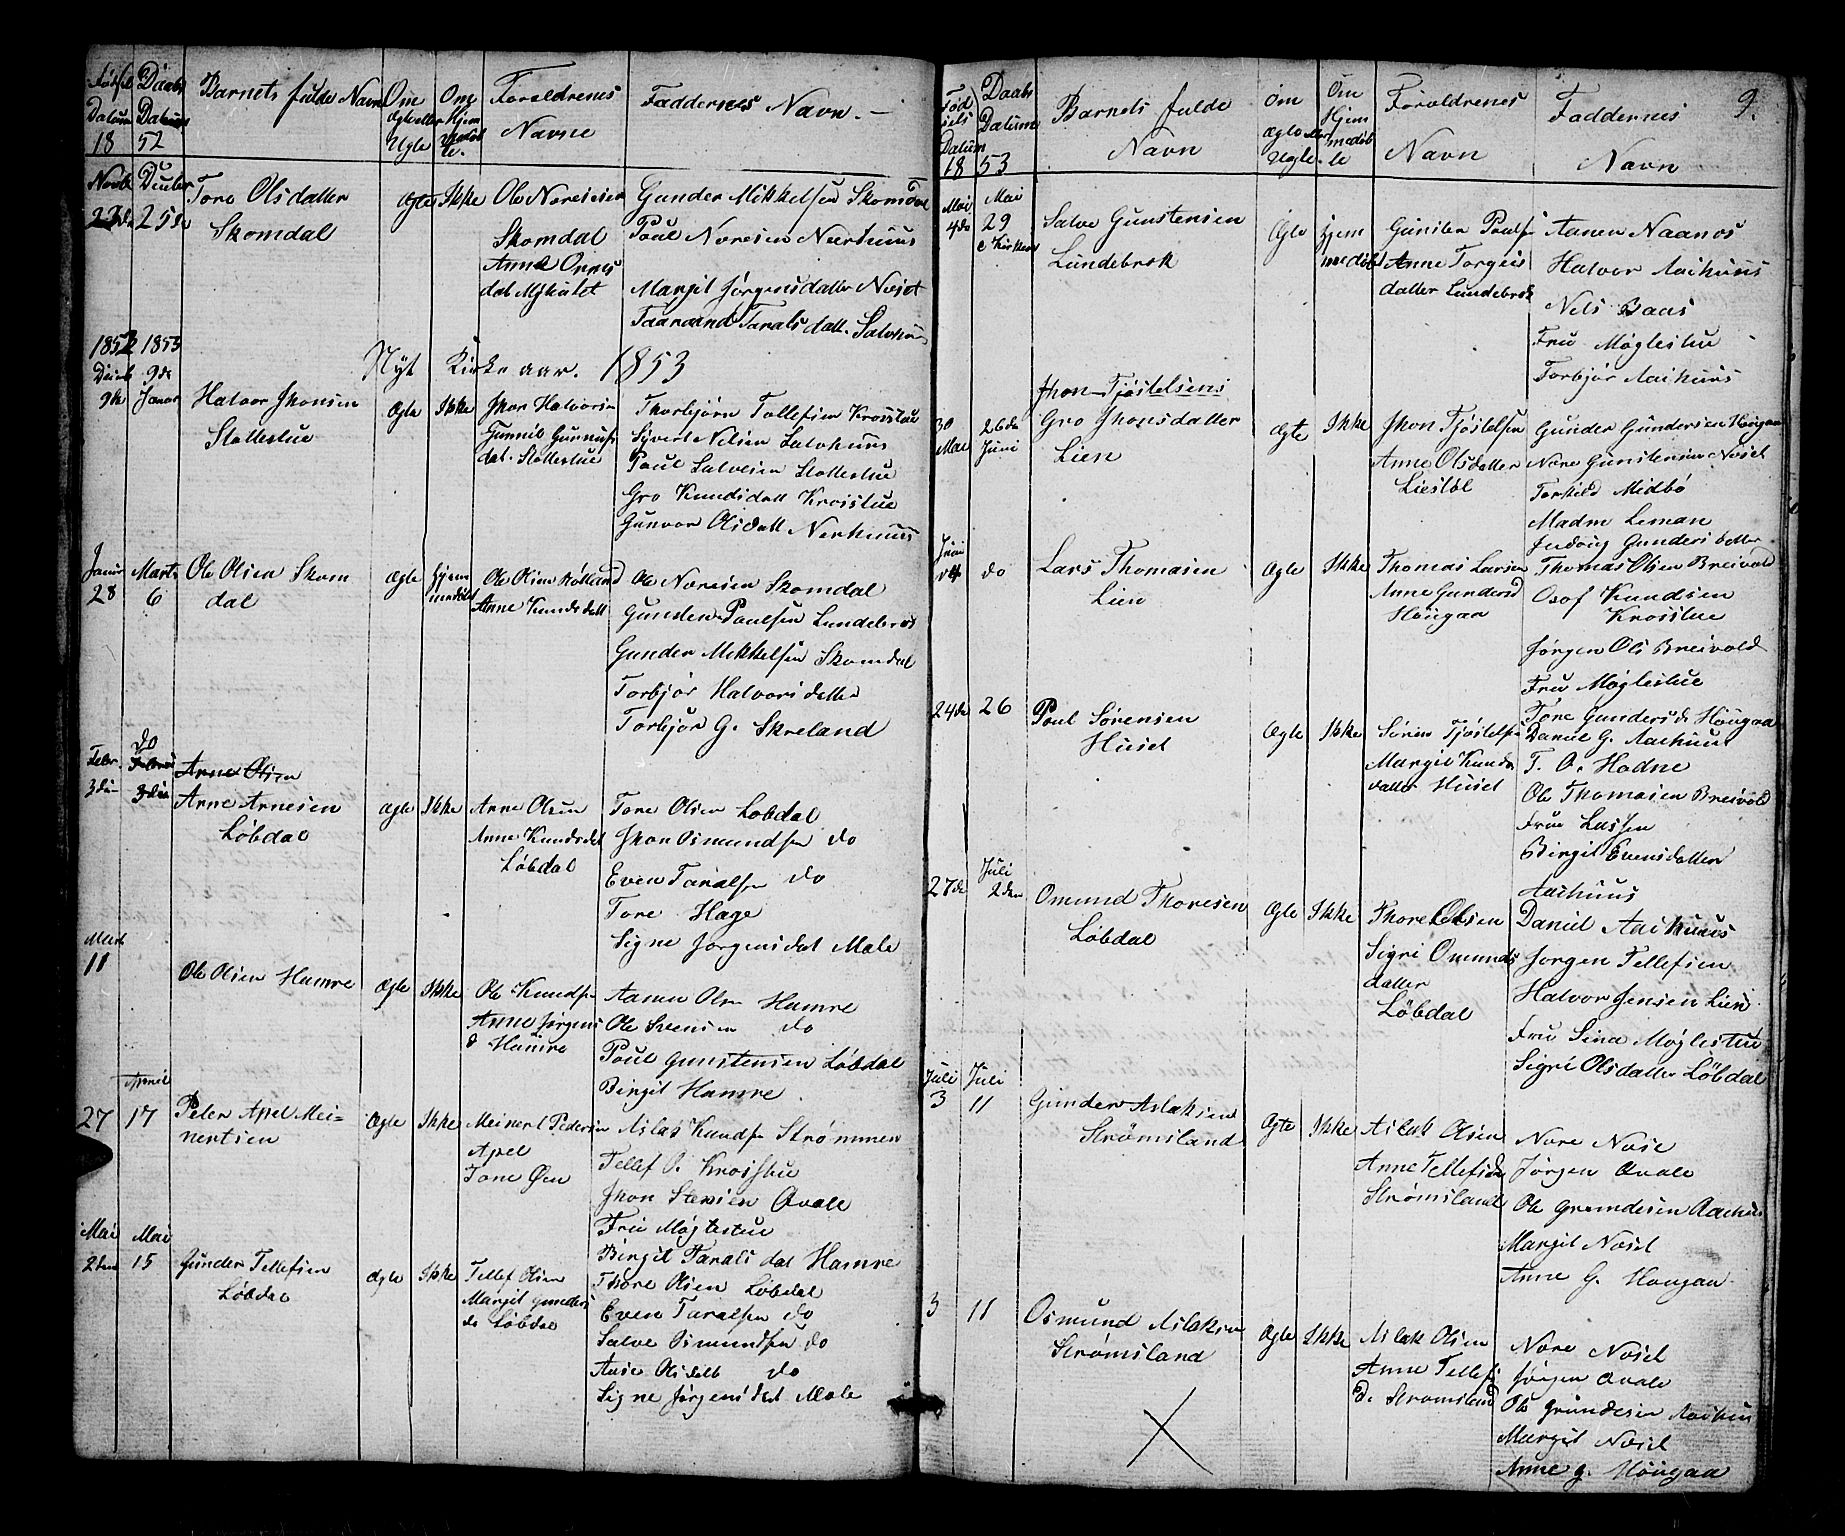 Daabs
Datum
18 52
Barnets fulde Navn
Om
Ægte eller
Ugte
Om
Hjem
Forældrenes
Navne
Faddernes Navn. –
25de
Tore Olsdatter
Skomdal
Ægte
Ikke
Ole Noresen
Skomdal
Anne
Gunder Mikkelsen Skomdal
Poul Noresen Nerhuus
Margit Jørgensdatter Noset
Taralsdatt.
1852 1853
Nyt Kirke aar. 1853
9de
Januar
Halvor Jhonsen
Stallestue
Ægte
Ikke
Jhon Halvorsen
Gunnil
dat. Stallestue
Thorbjørn Tellefsen Krosstue
Syvert Nilsen Salvhuus
Poul Salvesen Stallestue
Gro Knudsdatt Krosstue
Gunvor Olsdatt Nerhuus
Januar
28
Marts
6
Ole Olsen Skom
dal
Ægte
Hjem
medøbt
Ole Olsen
Anne Knudsdatt
Ole Noresen Skomdal
Gunder Paulsen Lundebrok
Gunder Mikkelsen Skomdal
Torbjør Halvorsdatter
Torbjør G. Skreland
Febr
3die
do
3die
Arne Olsen
Arne Arnesen
Løbdal
Ægte
Ikke
Arne Olsen
Anne Knudsdat
Løbdal
Tore Olsen Løbdal
Jhon Osmundsen do
Even Taralsen do
Tore Hage
Signe Jørgensdat Mæle
Marts
11
Ole Olsen Hamre
Ægte
Ikke
Ole Knudsen
Anne Jørgens
d Hamre
Aanen Olsen Hamre
Ole Svensen do
Poul Gunstensen Løbdal
Birgit Hamre
April
27 17
Peter Apel Mei-
nertsen
Ægte
Ikke
Meinert Pedersen
Apel
Tone Øen
Aslak Knudsen Strømmen
Tellef O. Krosstue
Jhon Qvale
Fru Møglestue
Birgit Taralsdat Hamre
Mai
2den
Mai
15
Gunder Tellefsen
Løbdal
Ægte
Ikke
Tellef Olsen
Margit Gunders
d. Løbdal
Thore Olsen Løbdal
Even Taralsen do
Salve Osmundsen do
Anse Olsdatt do
Signe Jørgensdat Mæle
9.
Fød
sels
Datum
Daabs
Datum
18 53
Barnets fulde
Navn
Om
Ægte eller
Ugte
Om
Hjem
medøb
te
Forældrenes
Navn
Faddernes
Navn
Mai
4de
Mai
29
Salve Gunstensen
Lundebrok
Ægte
hjem
medøbt
Gunsten Poulsen
Anne Torgus
datter Lundebrok
Aanen Naanos
Halvor Aashuus
Nels Baas
Fru Møglestue
Torbjør Aashuus
30
Mai
26de
Juni
Jhon Tjøstelsens
Gro Jhonsdatter
Lien
Ægte
Ikke
Jhon Tjøstelsen
Anne Olsdatter
Liestøl
Gunder Gundersen Høigaa
Nore Gunstensen Nosel
Torkild Midbø
Madm Leman
Gundersdatter
Juni
do
Lars Thomasen
Lien
Ægte
Ikke
Thomas Larsen
Anne Gundersd
Høugaa
Thomas Olsen Breivold
Osof Knudsen
Krosstue
Jørgen Ols Breivold
Fru Møglestue
Tone Gundersd. Høugaa
24de
26
Poul Sørensen
Huset
Ægte
Ikke
Søren Tjøstelsen
Margit Knuds
datter Huset
Daniel G. Aashuus
T. O. Hodne
Ole Thomasen Breivold
Fru Lassen
Birgit Evensdatter
Aashuus
27de
Juli
2den
Omund Thoresen
Løbdal
Ægte
Ikke
Thore Olsen
Sigri Omunds
datter
Løbdal
Daniel Aashuus
Jørgen Tellefsen
Halvor Jensen Lien
Fru Sina Møglestue
Sigri Olsdatter Løbdal
Juli
3
Juli
11
Gunder Aslaksen
Strømsland
Ægte
Ikke
Aslak Olsen
Anne Tellefsd
Strømsland
Nore Nose
Jørgen Qvale
Ole Grundesen Aashus
Margit Nosel
Anne G. Hougaa
3
11
Osmund Aslaksen
Strømsland
Ægte
Ikke
Aslak Olsen
Anne Tellefs
d. Strømsland
Nore Nosel
Jørgen Qvale
Ole Grundesen Aashus
Margit Nosel
Anne G. Høugaa